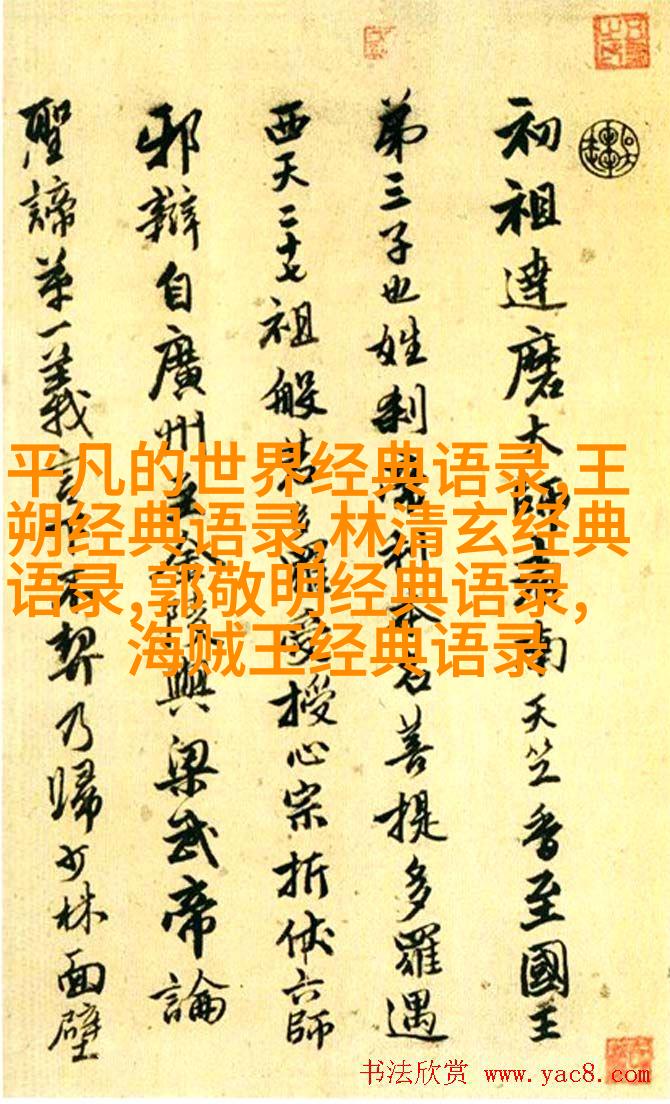 初祖達磨大師
南天竺香至國王
第三子也姓刹
菩提多羅遇
西天二十七祖般若
受授心宗折伏六師
邪辯自廣州
與梁武帝論
聖諦第一義言
契乃歸少林面壁
平凡的世界经典语录,王
朔经典语录,林清玄经典
语录,郭敬明经典语录,
海贼王经典语录
书法欣赏 www.yac8.com